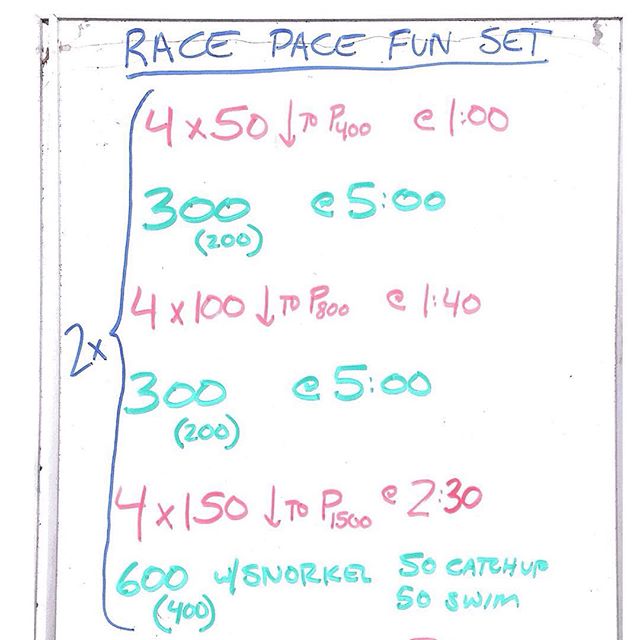 RACE PACE FUN SET
4 x 50 ↓ TO P400 @ 1:00
300 @ 5:00
(200)
4 x 100 ↓ TO P800 @ 1:40
2x
300 @ 5:00
(200)
4 x 150 ↓ TO P1500 @ 2:30
600 w/SNORKEL 50 CATCHUP
(400) 50 SWIM